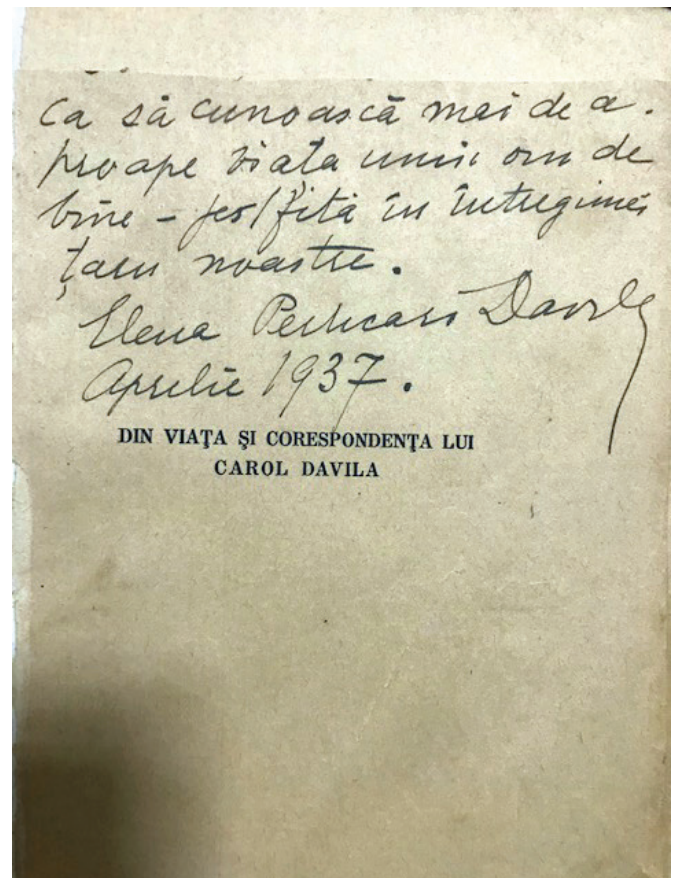 Ca să cunoască mai de a.
proape viata unui om de
bine - jertfită în întregimei
țării noastre.
Elena Perticari Davila
Aprilie 1937.
DIN VIAŢA ŞI CORESPONDENŢA LUI
CAROL DAVILA